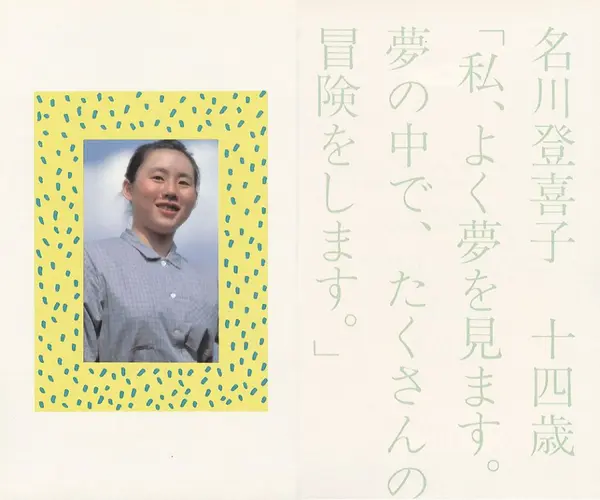 名川登喜子 十四歳
「私、よく夢を見ます。
夢の中で、たくさんの
冒険をします。」